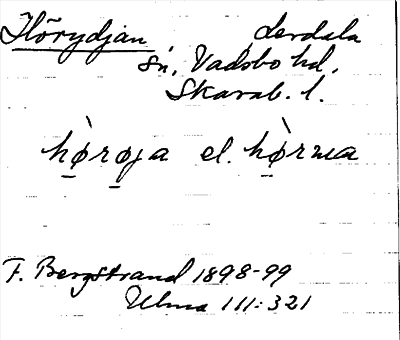 Hörydjan Lerdala
sn, Vadsbo hd,
Skarab. l.
hø̀røja el. hø̀rma
F. Bergstrand 1898-99
Ulma 111:321